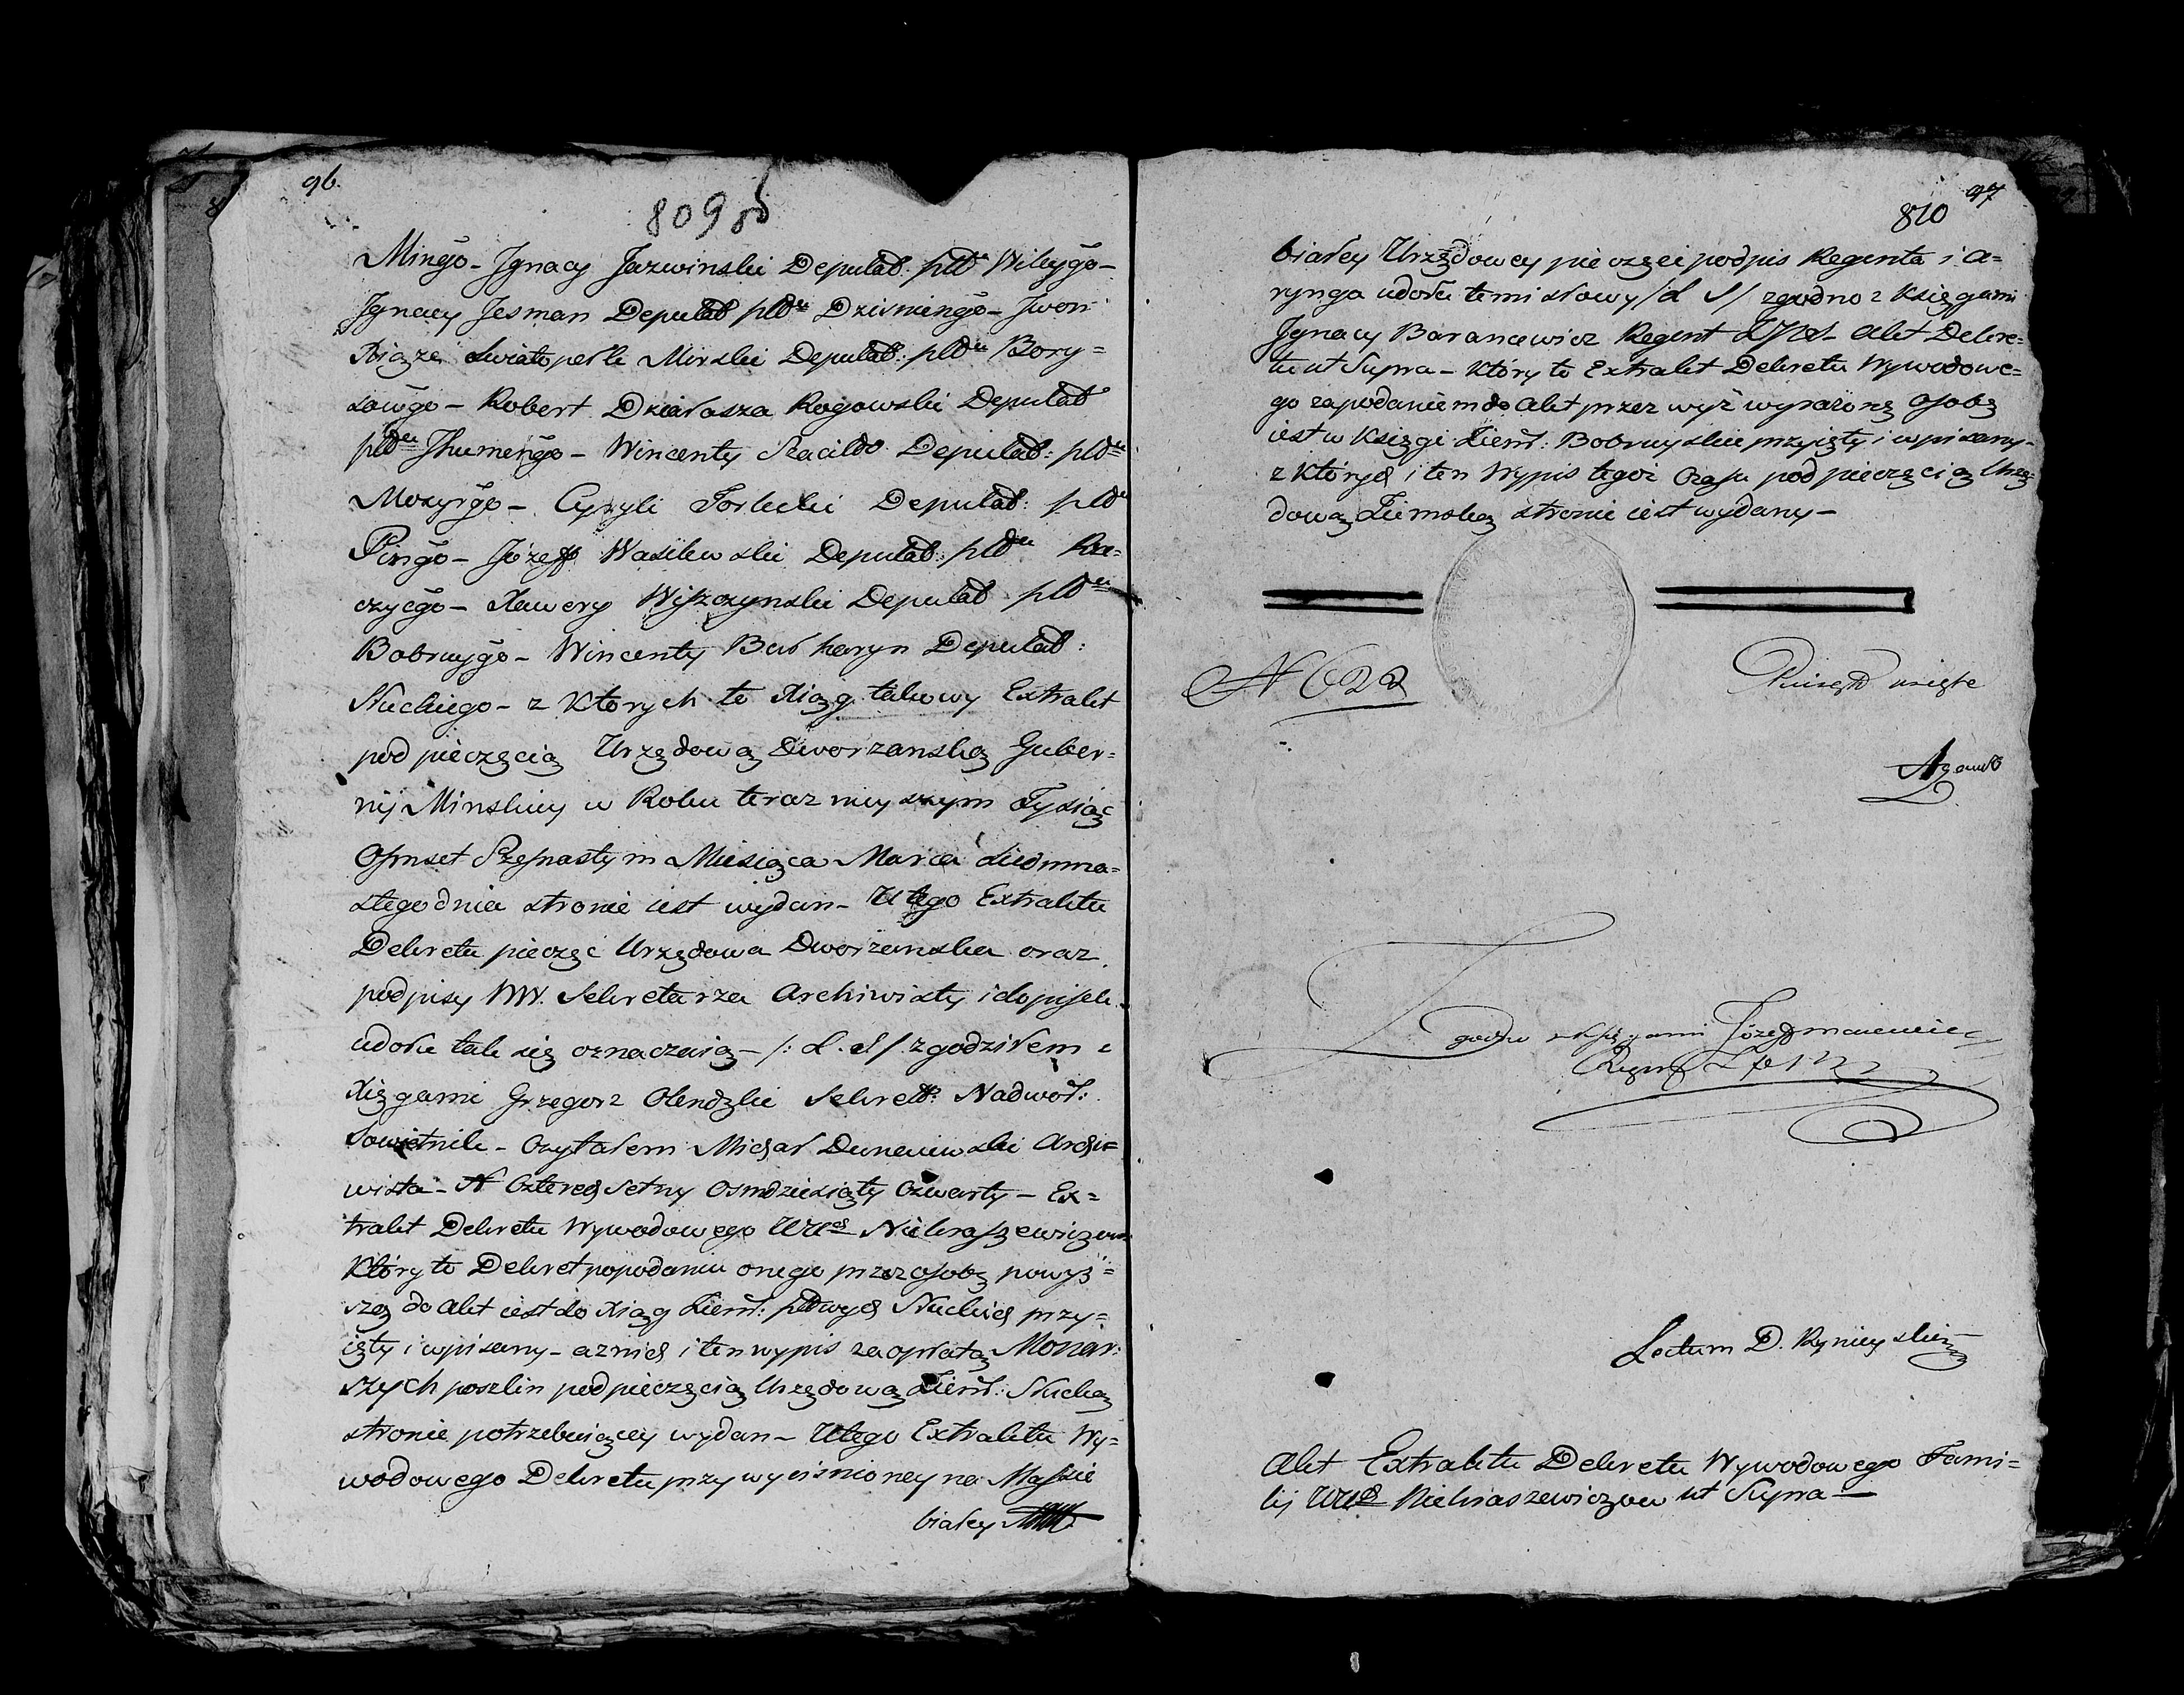 96.
809 об
Mińgo – Jgnacy Jazwinski Deputat: pttu Wileygo –
Jgnacy Jesman Deputat pttu Dzisnieńgo – Jwon
Xiąze Swiatopełk Mirski Deputat: pttu Bory=
sowgo – Robert Dziarasza Rogowski Deputat
pttu Jhumeńgo – Wincenty Szaciłło Deputat: pttu
Mozyrgo – Cyryli Torlecki Deputat: pttu
Pińgo – Józeff Wasilewski Deputat: pttu Rze=
czycgo – Xawery Wyszczynski Deputat pttu
Bobruygo – Wincenty Bułharyn Deputat:
Słuckiego – z ktorych to Xiąg takowy Extrakt
pod pieczęcią Urzędową Dworzanską Guber=
nij Minskiey w Roku teraznieyszym Tysiąc
Osmset Szesnastym Miesiąca Marca siedmna=
stego dnia stronie iest wydan – U tego Extraktu
Dekretu pieczęc Urzędowa Dworzanska oraz
podpisy WW. Sekretarza Archiwisty i dopisek
udołu tak się oznaczaią – /: L. S / zgodziłem z
Xięgami Grzegorz Olendzki Sekrett: Nadwor:
Sowietnik – Czytałem Michał Duneiewski Archi=
wista – N Czterechsetny Osmdziesiąty Czwarty – Ex=
trakt Dekretu Wywodowego WUch Niekraszewiczow
Który to Dekret popodaniu onego przez osobę powyż=
szą do akt iest do Xiąg Ziem: pttwych Słuckich przy=
ięty i wpisany – a z nich i ten wypis za opłatą Monar:
szych poszlin pod pieczęcią Urzędową Ziem: Słucką
stronie potrzebuiącey wydan – U tego Extraktu Wy=
wodowego Dekretu przy wycisnioney na Massie
białey
97
810
białey Urzędowey pieczęci podpis Regenta i a=
rynga udołu temi słowy / L S / zgodno z Xięgami
Jgnacy Barancewicz Regent ZPSł – Akt Dekre=
tu ut Supra – Który to Extrakt Dekretu Wywodowe=
go zapodaniem do Akt przez wyż wyrażoną osobę
iest w Księgi Ziem: Bobruyskie przyięty i wpisany –
z których i ten Wypis tegoż Czasu pod pieczęcią Urzę=
dową Ziemską stronie iest wydany –
N 622
Lectum D. Rynieyski
Akt Extraktu Dekretu Wywodowego Fami=
lij WUch Niekraszewiczow ut Supra —